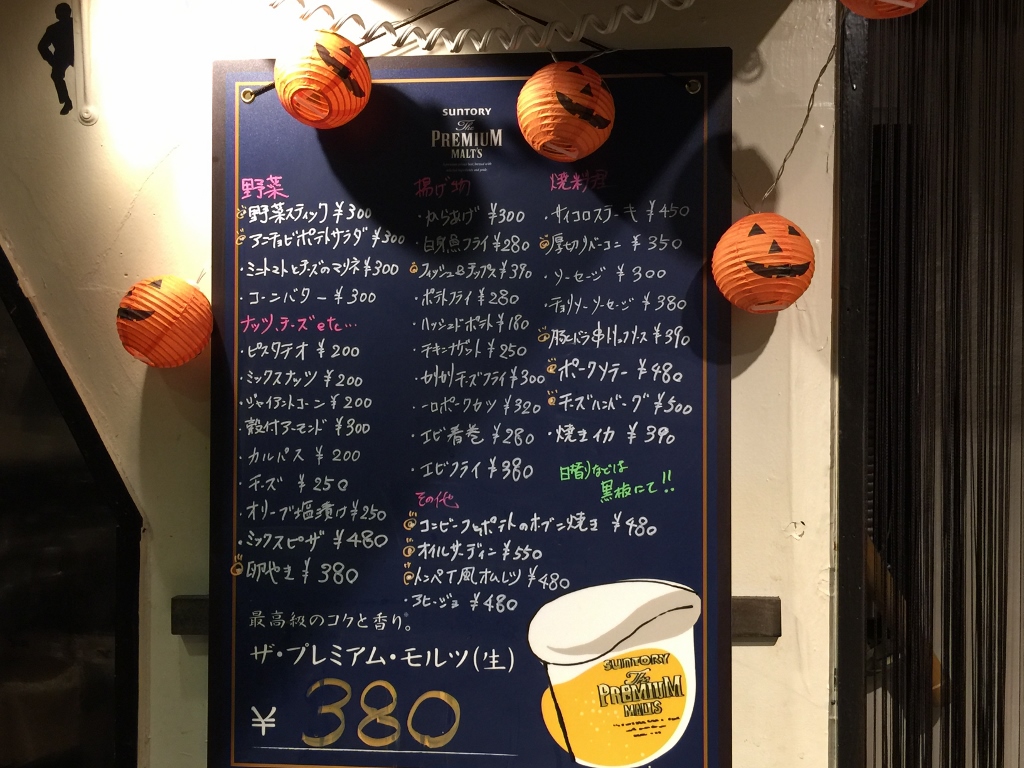 SUNTORY
The
PREMIUM
MALT'S
野菜
野菜スティック ¥300
アンチョビポテトサラダ ¥300
・ミニトマトとチーズのマリネ ¥300
・コーンバター ¥300
ナッツ、チーズetc…
・ピスタチオ ¥200
・ミックスナッツ ¥200
・ジャイアントコーン ¥200
・殻付アーモンド ¥300
・カルパス ¥200
・チーズ ¥250
・オリーブ塩漬け ¥250
・ミックスピザ ¥480
卵やき ¥380
揚げ物
・からあげ ¥300
・白身魚フライ ¥280
フィッシュ&チップス ¥390
・ポテトフライ ¥280
・ハッシュドポテト ¥180
・チキンナゲット ¥250
・カリカリチーズフライ ¥300
・一口ポークカツ ¥320
・エビ春巻 ¥280
・エビフライ ¥380
その他
コンビーフとポテトのオーブン焼き ¥480
オイルサーディン ¥550
トンペイ風オムレツ ¥480
・アヒージョ ¥480
焼料理
・サイコロステーキ ¥450
厚切りベーコン ¥350
・ソーセージ ¥300
・チョリソーソーセージ ¥380
¥390
ポークソテー ¥480
チーズハンバーグ ¥500
・焼きイカ ¥390
日替りなどは
黒板にて!!
最高級のコクと香り。
ザ・プレミアム・モルツ(生)
¥380
SUNTORY
The
PREMIUM
MALT'S